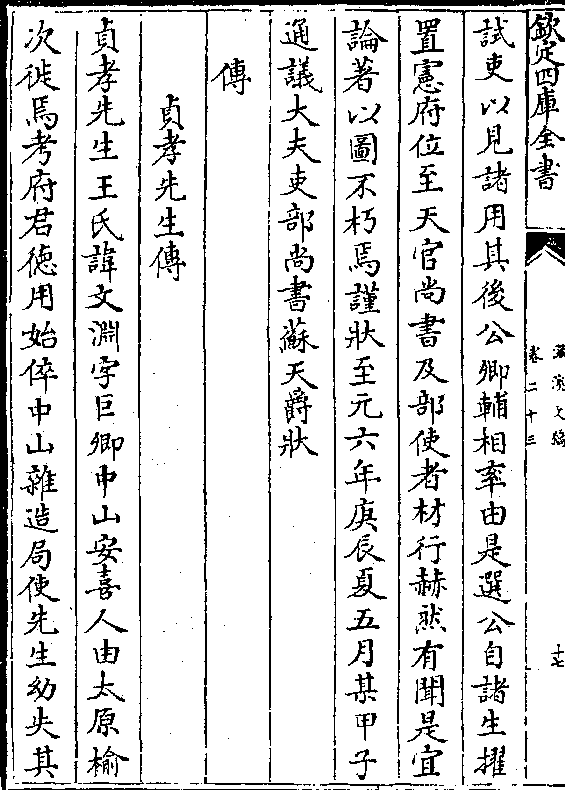 欽定四庫全書
滋溪文稿
卷二十三
十七
試吏以見諸用其後公卿輔相率由是選公自諸生擢
置憲府位至天官尚書及部使者材行赫然有聞是宜
論著以圖不朽焉謹狀至元六年庚辰夏五月某甲子
通議大夫吏部尚書蘇天爵狀
傳
貞孝先生傳
貞孝先生王氏諱文淵字巨卿中山安喜人由太原榆
次徙焉考府君德用始倅中山雜造局使先生幼失其